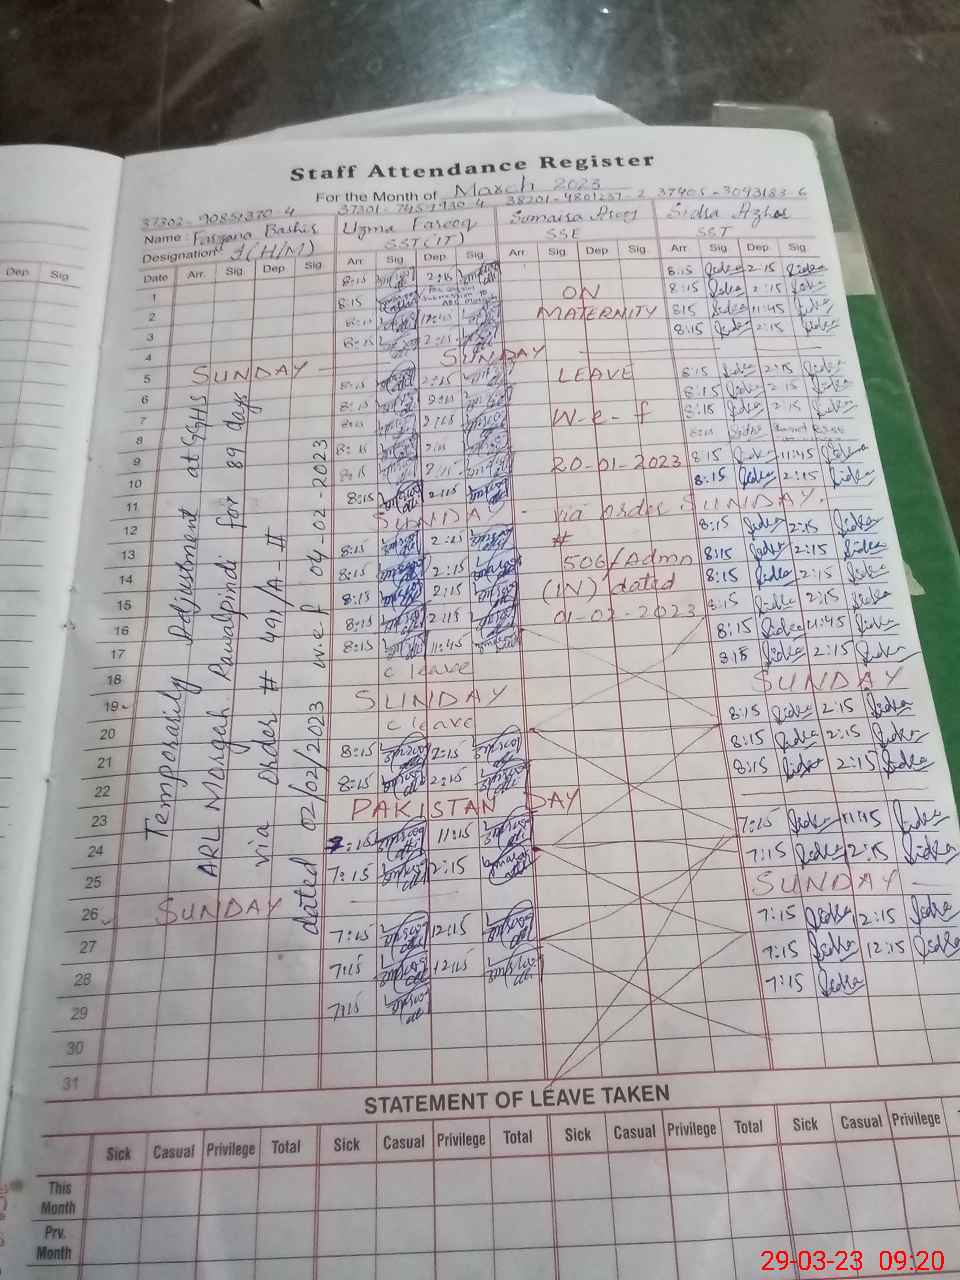 Staff Attendance Register
For the Month of March 2023
37302-9085370-4 38201-4801257-2 37405-3093183-6
Name: Farzana Bashir Uzma Farooq Sumaira Sidra Azhar
Designation I(H/M) SST(IT) SSE SST
Date Arr. Sig. Dep Sig. Arr. Sig Dep Sig. Arr. Sig Dep Sig. Arr. Sig Dep. Sig.
1 8:15 2:15 8:15 Sidra 2:15 Sidra
2 8:15 ON 8:15 Sidra 2:15 Sidra
3 8:15 11:45 MATERNITY 8:15 Sidra 11:45 Sidra
4 8:15 2:15 8:15 Sidra 2:15 Sidra
5 SUNDAY SUNDAY
6 8:15 2:15 LEAVE 8:15 Sidra 2:15 Sidra
7 8:15 2:15 8:15 Sidra 2:15 Sidra
8 8:15 2:15 W-e-f 8:15 Sidra 2:15 Sidra
9 8:15 2:15 8:15 Sidra
10 8:15 20-01-2023 8:15 Sidra 11:45 Sidra
11 8:15 2:15 8:15 Sidra 2:15 Sidra
12 SUNDAY via order SUNDAY
13 8:15 2:15 # 8:15 Sidra 2:15 Sidra
14 8:15 2:15 506/Admn 8:15 Sidra 2:15 Sidra
15 8:15 2:15 (IN) dated 8:15 Sidra 2:15 Sidra
16 8:15 2:15 01-02-2023 8:15 Sidra 2:15 Sidra
17 8:15 11:45 8:15 Sidra 11:45 Sidra
18 c leave 8:15 Sidra 2:15 Sidra
19 SUNDAY SUNDAY
20 c leave 8:15 Sidra 2:15 Sidra
21 8:15 2:15 8:15 Sidra 2:15 Sidra
22 8:15 2:15 8:15 Sidra 2:15 Sidra
23 PAKISTAN DAY
24 7:15 11:15 7:15 Sidra 11:15 Sidra
25 7:15 12:15 7:15 Sidra 12:15 Sidra
26 SUNDAY SUNDAY
27 7:15 12:15 7:15 Sidra 12:15 Sidra
28 7:15 12:15 7:15 Sidra 12:15 Sidra
29 7:15 7:15 Sidra
30
31
Temporarily Adjustment at GGHS
ARL Morgah Rawalpindi for 89 days
via order # 491/A-II
dated 02/02/2023 w.e.f 04-02-2023
STATEMENT OF LEAVE TAKEN
Sick Casual Privilege Total Sick Casual Privilege Total Sick Casual Privilege Total Sick Casual Privilege
This
Month
Prv.
Month
Dep. Sig
29-03-23 09:20